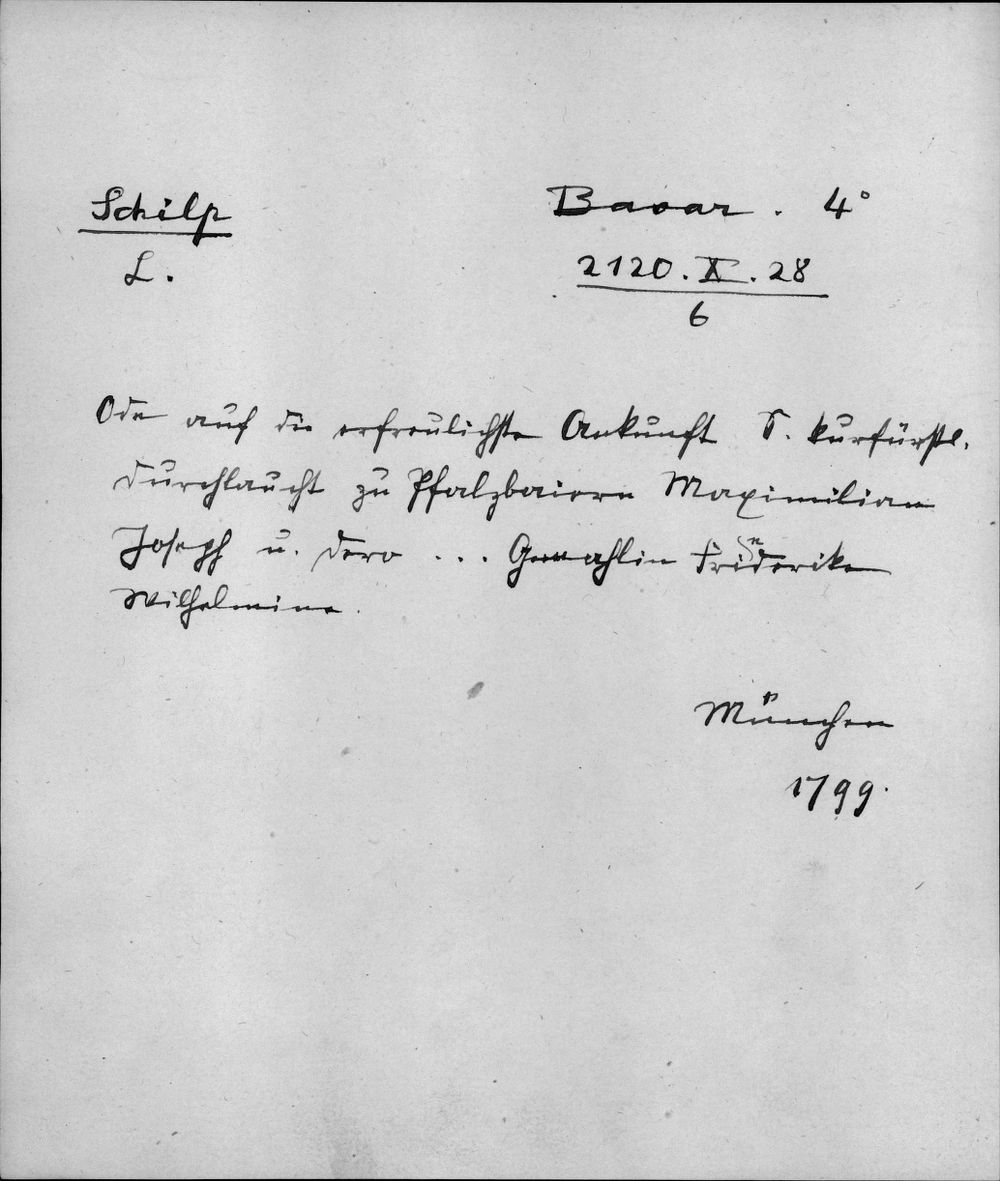 Schilp
L.
Bavar. 4°
2120.X.28
6
Ode auf die erfreulichste Ankunft S. kurfürstl.
Durchlaucht zu Pfalzbaiern Maximilian
Joseph u. dero ... Gemahlin Friederike
Wilhelmine.
München
1799.